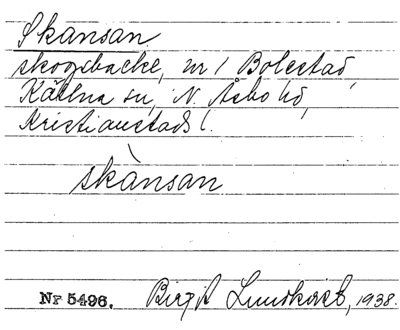 Skansan.
skogsbacke, nr 1 Bolestad,
Källna sn, N. Åsbo hd,
Kristianstads l.
skànsan
Nr 5496. Birgit Lundkvist, 1938.